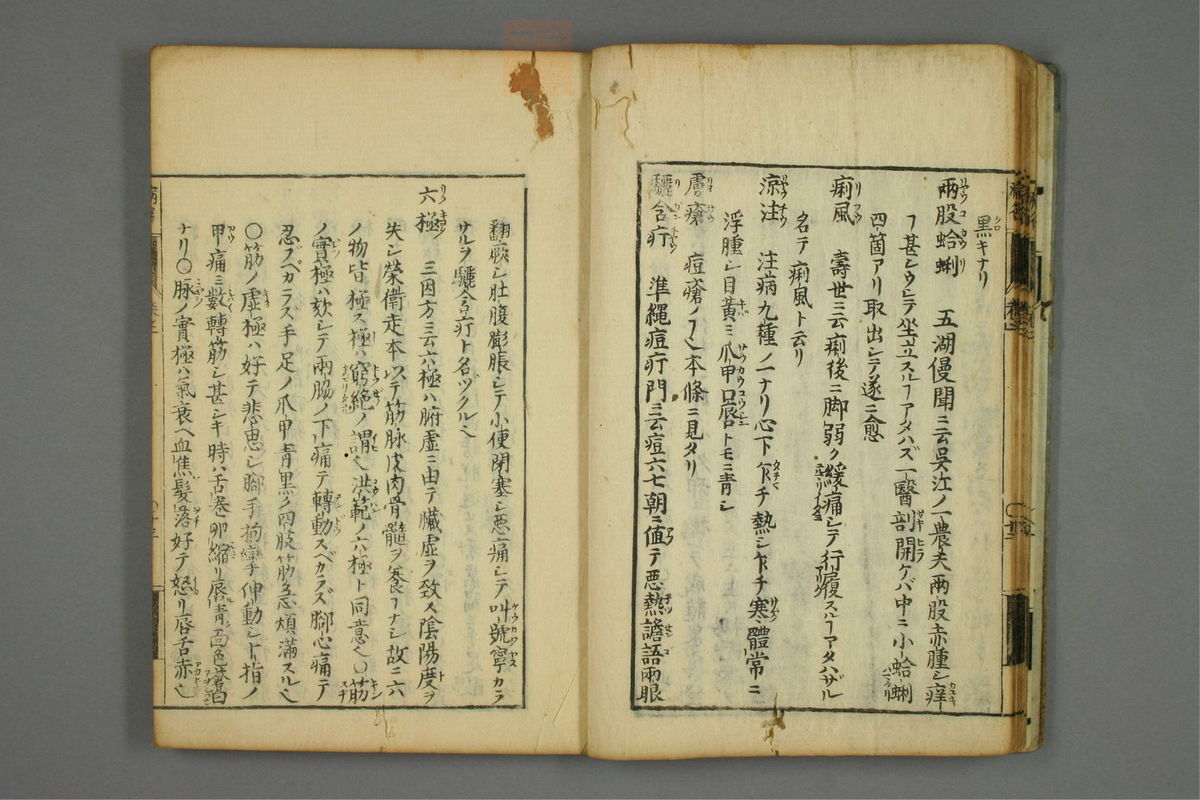 黒キナリ
兩股蛤蜊　五湖僈聞ニ云呉江ノ一農夫兩股赤腫シ痒
ヿ甚シウシテ坐立スルヿアタハズ一醫剖開ケバ中ニ小蛤蜊
四箇アリ取出シテ遂ニ愈
痢風　壽世ニ云痢後ニ脚弱ク緩痛シテ行履スルヿアタハザル
名テ痢風ト云リ
涼注　注病九種ノ一ナリ心下乍チ熱シ乍チ寒シ體常ニ
浮腫シ目黄ミ爪甲口唇トモニ青シ
痘瘡ノヿ本條ニ見タリ
驪含疔　準縄痘疔門ニ云痘六七朝ニ値テ悪熱譫語兩眼
翻厥シ肚腹膨脹シテ小便閉塞シ悪痛シテ叫號寧カラ
サルヲ驪含疔ト名ヅクル也
六極　三因方ニ云六極ハ腑虚ニ由テ臓虚ヲ致ス陰陽度ヲ
失シ榮衛走本以テ筋脉皮肉骨髓ヲ養ヿナシ故ニ六
ノ物皆極ス極ハ窮絶ノ謂也洪範ノ六極ト同意也〇筋
ノ實極ハ欬シテ兩脇ノ下痛テ轉動スベカラズ脚心痛テ
忍ブベカラズ手足ノ爪甲青黒ク四肢筋急煩滿スル也
〇筋ノ虚極ハ好テ悲思シ脚手拘攣シ伸動シト指ノ
甲痛ミ數轉筋シ甚シキ時ハ舌巻卵縮リ唇青ク面色蒼白
ナリ〇脉ノ實極ハ氣衰ヘ血焦髪落好テ怒リ唇舌赤也